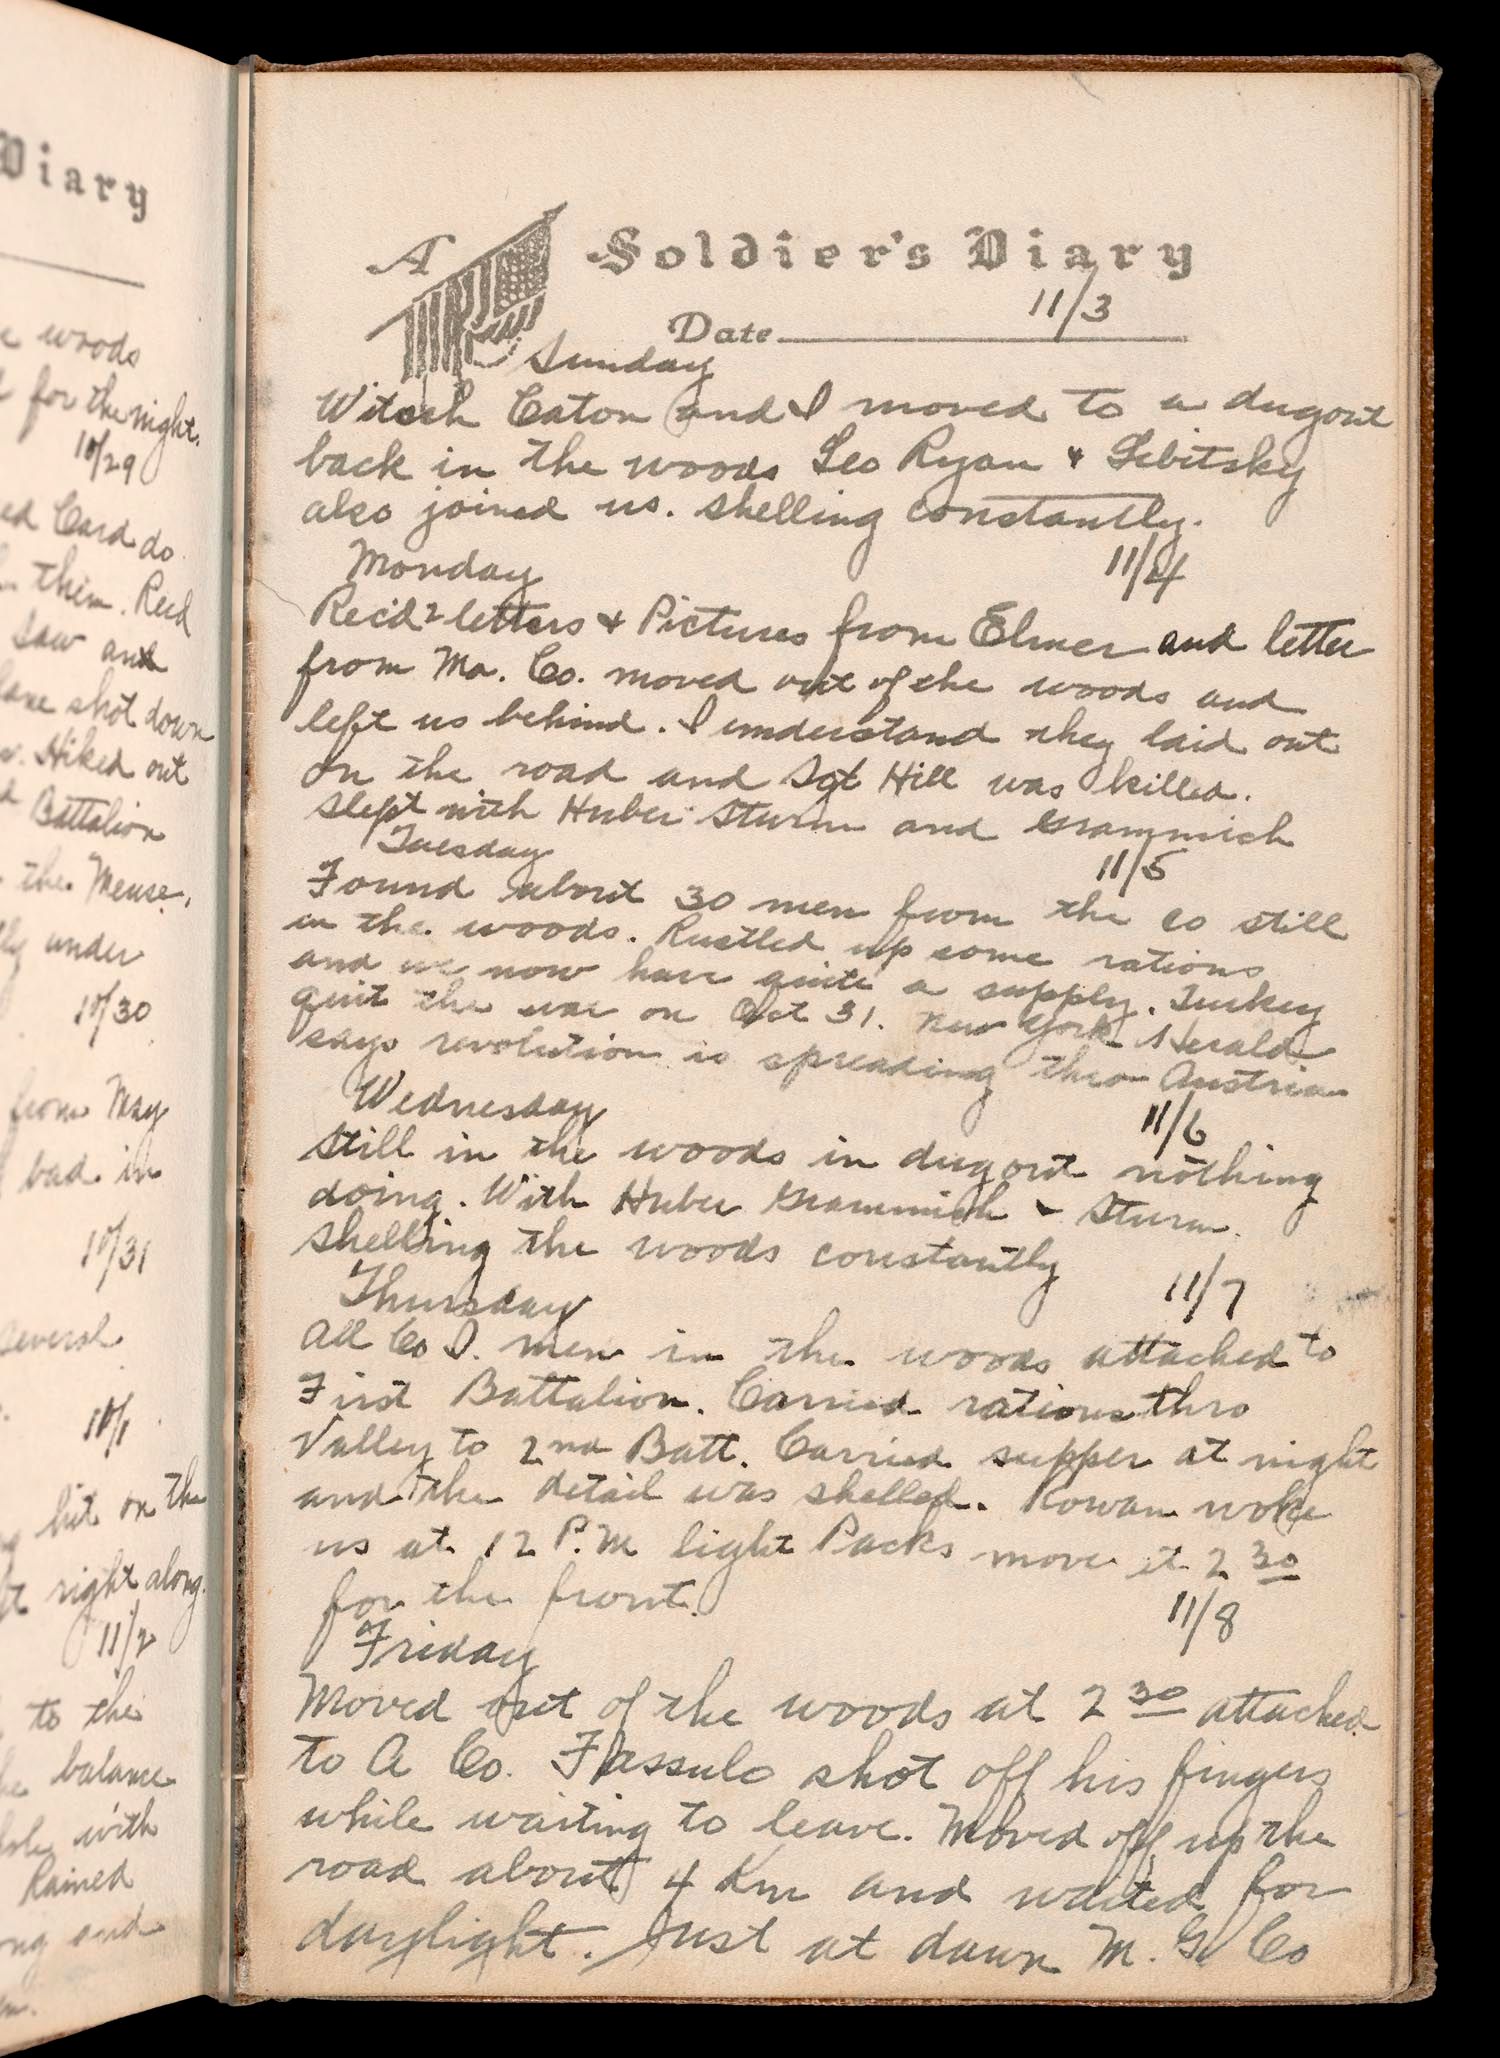 Diary
woods
for the night.
10/29
Card do
them. Recd
saw and
shot down
Hiked out
Battalion
the Meuse,
under
10/30
from May
bad in
10/31
several
10/1
hit on the
right along.
11/2
to the
balance
with
Rained
and
A Soldier's Diary
Date 11/3
Sunday
Witsch Caton and I moved to a dugout
back in the woods Leo Ryan & Lebitsky
also joined us. Shelling constantly.
Monday 11/4
Rec'd 2 letters & Pictures from Elmer and letter
from Ma. Co. moved out of the woods and
left us behind. I understand they laid out
on the road and Sgt Hill was killed.
Slept with Huber Sturm and Grammich
Tuesday 11/5
Found about 30 men from the co still
in the woods. Rustled up some rations
and we now have quite a supply. Turkey
quit the war on Oct 31. New York Herald
says revolution is spreading thro Austria
Wednesday 11/6
Still in the woods in dugout nothing
doing. With Huber Grammich & Sturm.
Shelling the woods constantly
Thursday 11/7
All Co I. men in the woods attached to
First Battalion. Carried rations thro
Valley to 2nd Batt. Carried supper at night
and the detail was shelled. Kowan woke
us at 12 P.M light Packs move at 2 30
for the front.
Friday 11/8
Moved out of the woods at 2 30 attached
to A Co. Fassulo shot off his fingers
while waiting to leave. Moved off up the
road about 4 Km and waited for
daylight. Just at dawn M. G. Co